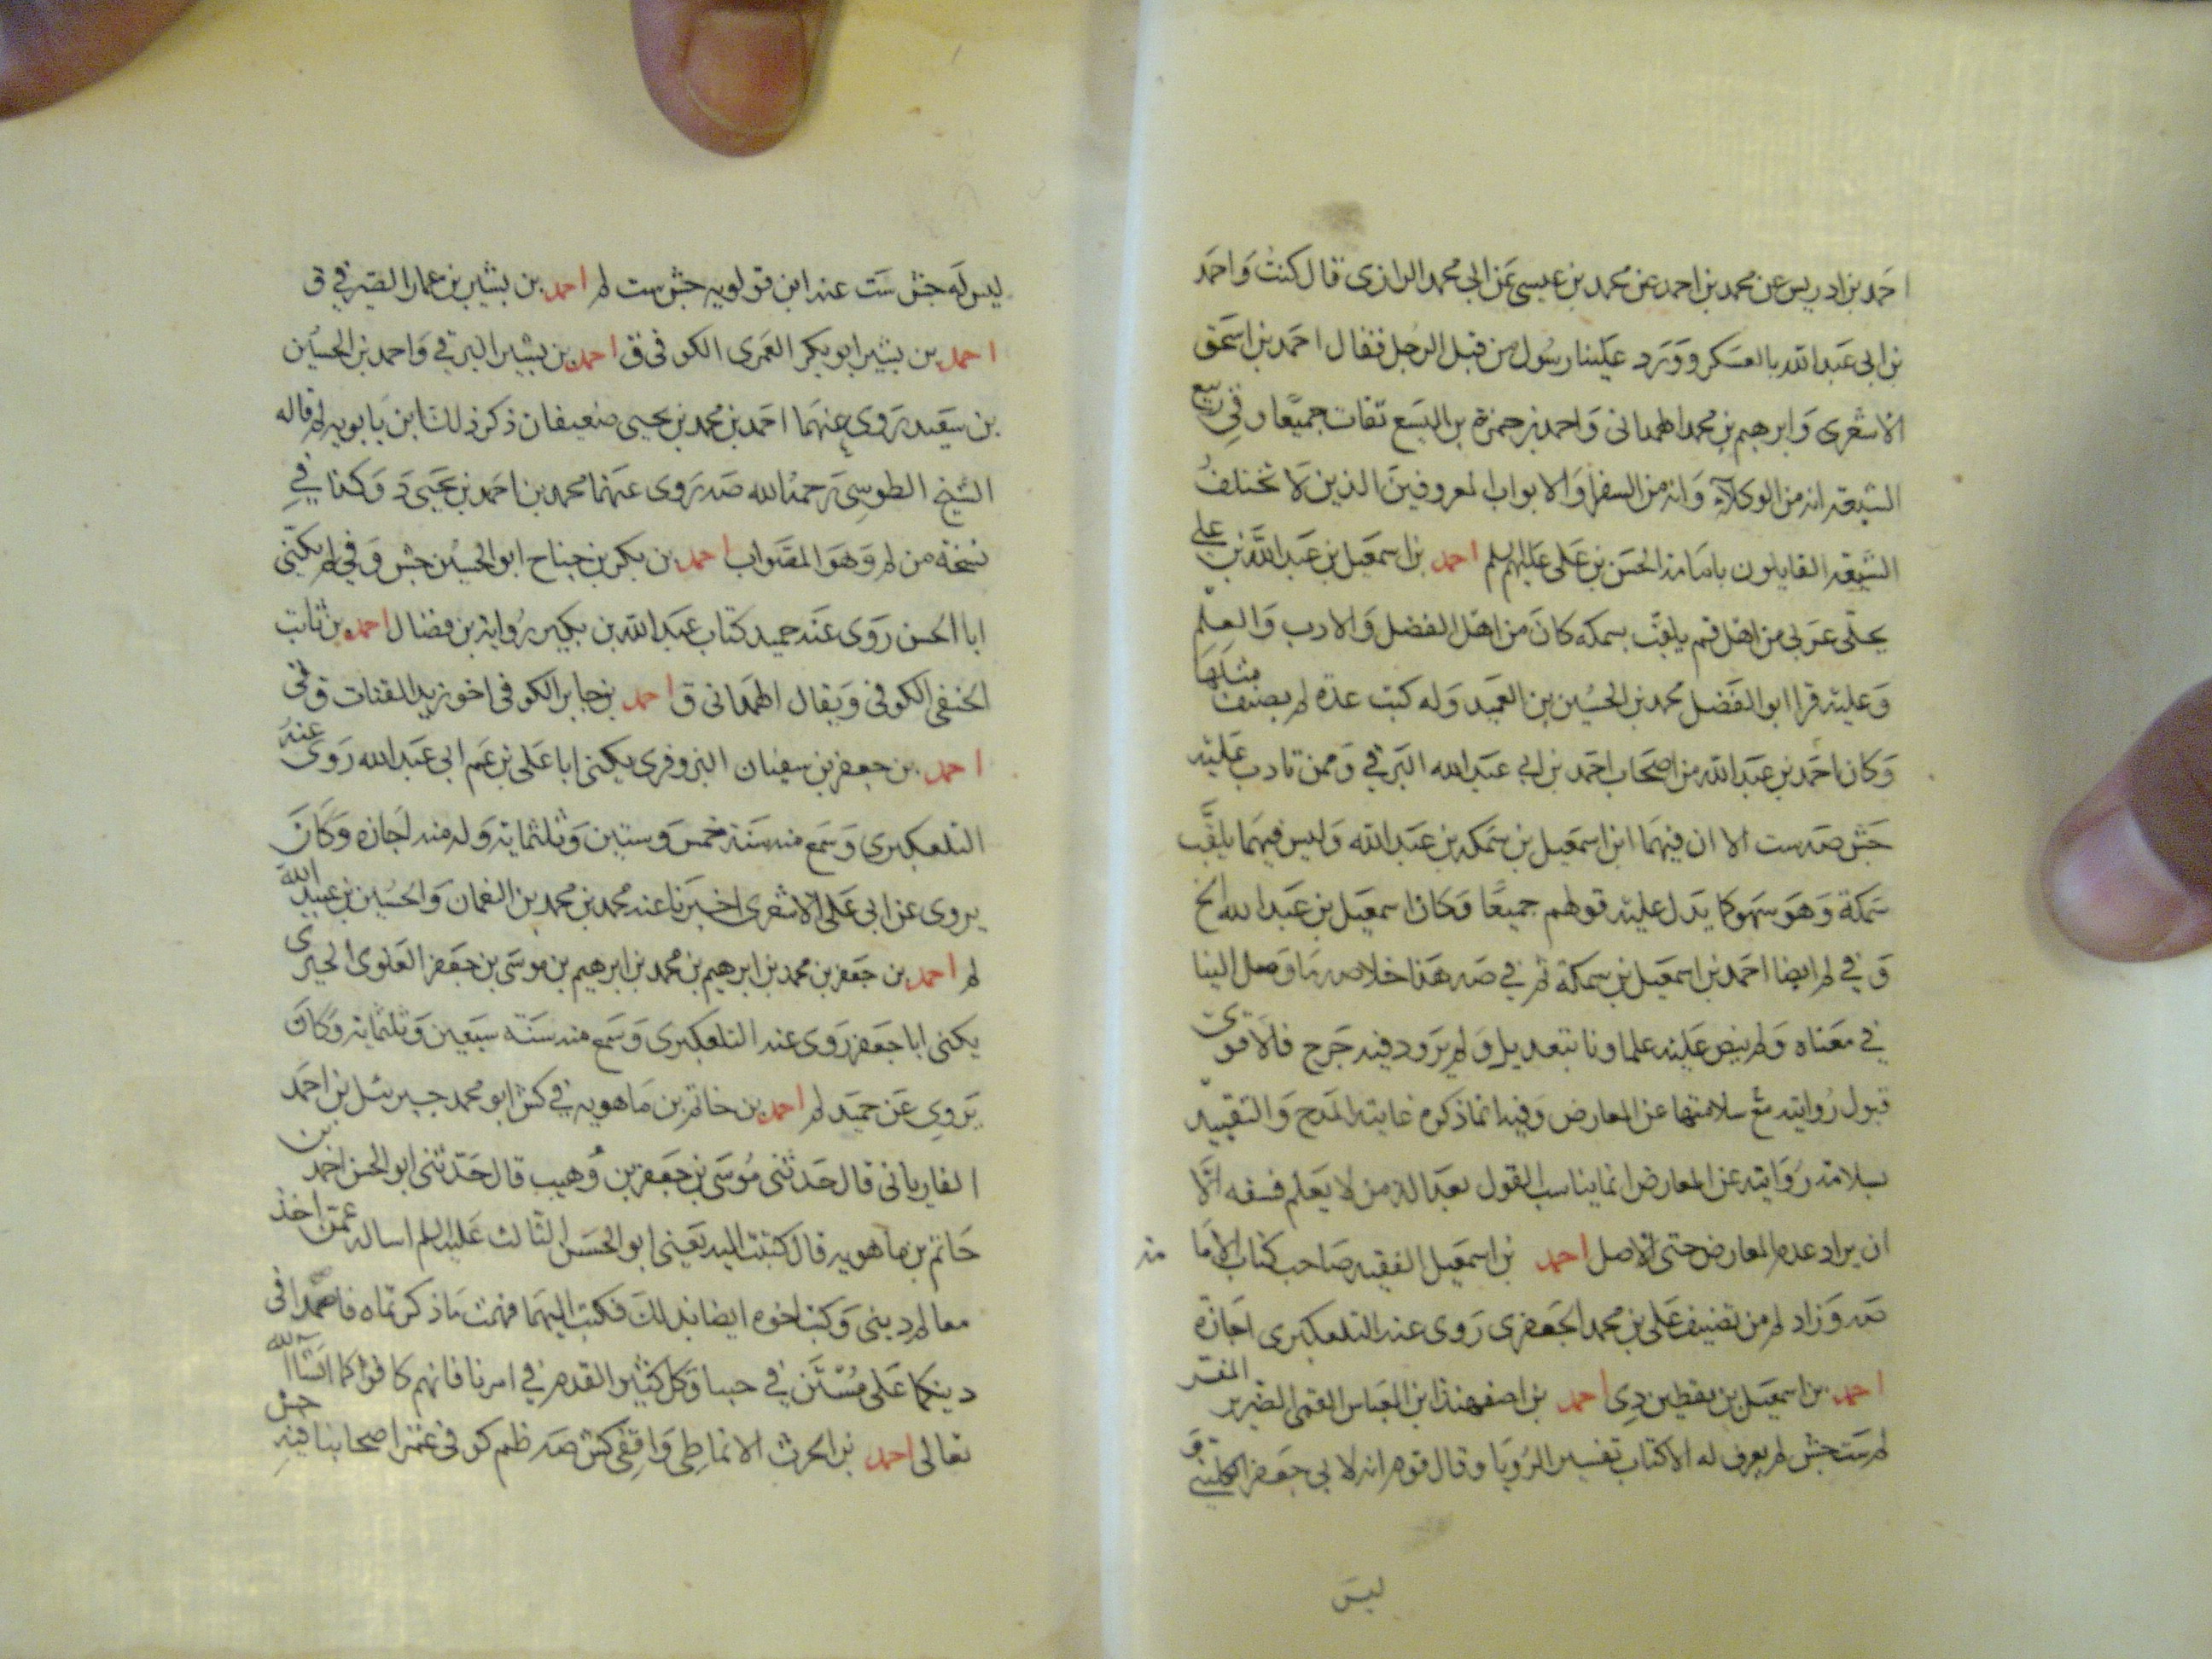 احمد بن ادريس عن محمد بن احمد عن محمد بن عيسى عن ابي محمد الرازى قال كنت واحمد
بن ابى عبد الله بالعسكر وورد علينا رسول من قبل الرجل فقال احمد بن اسحق
الاشعرى وابرهيم بن محمد الهمدانى واحمد بن حمزة بن اليسع ثقات جميعا وفي ربيع
الشيعة انه من الوكلاء وانه من السفرا والابواب المعروفين الذين لا تختلف
الشيعة القايلون بامامة الحسن بن على عليهم السلم احمد بن اسمعيل بن عبد الله بن
بجلى عربى من اهل قم يلقب بسمكه كان من اهل الفضل والادب والعلم
وعليه قرا ابو الفضل محمد بن الحسين بن العميد وله كتب عدة لم يصنف مثلها
وكان احمد بن عبد الله من اصحاب احمد بن ابي عبد الله البرقي وممن تادب عليه
جش صه ست الا ان فيهما ابن اسمعيل بن سمكه بن عبد الله وليس فيهما يلقب
سمكة وهو سهو كما يدل عليه قولهم جميعا وكان اسمعيل بن عبد الله الخ
و في لم ايضا احمد بن اسمعيل بن سمكة ثم في صه هذا خلاصه ما وصل الينا
في معناه ولم ينص عليه علماونا بتعديل ولم يرو فيه جرح فالاقوى
قبول روايته مع سلامتها عن المعارض وفيه انما ذكره غايته المدح والتقييد
بسلامة روايته عن المعارض انما يناسب القول بعدالة من لا يعلم فسقه الا
ان يراد عدم المعارض حتى الاصل احمد بن اسمعيل الفقيه صاحب كتاب الاما مة
صه وزاد لم من تصنيف على بن محمد الجعفرى روى عنه التلعكبرى اجازة
احمد بن اسمعيل بن يقطين دي احمد بن اصفهبذ ابن العباس القمى الضرير المفسر
لم ست جش لم يعرف له الا كتاب تفسير الرويا وقال قوم انه لابي جعفر الكلينى و
ليس
ليس له جش ست عنه ابن قولويه جش ست لم احمد بن بشير بن عمار الصيرفي ق
احمد بن بشير ابو بكر العمرى الكوفى ق احمد بن بشير البرقي واحمد بن الحسين
بن سعيد روى عنهما احمد بن محمد بن يحيى ضعيفان ذكر ذلك ابن بابويه لم قاله
الشيخ الطوسي رحمه الله صه روى عنهما محمد بن احمد بن يحيى د وكذا في
نسخة من لم وهو الصواب احمد بن بكر بن جناح ابو الحسين جش وفي لم يكنى
ابا الحسن روى عنه حميد كتاب عبد الله بن بكير رواية بن فضال احمد بن ثابت
الحنفى الكوفى ويقال الهمدانى ق احمد بن جابر الكوفى اخو زيد القتات ق
احمد بن جعفر بن سفيان البزوفرى يكنى ابا على بن عم ابى عبد الله روى عنه
التلعكبرى وسمع منه سنة خمس وستين وثلثماية وله منه اجازه وكان
يروى عن ابى على الاشعرى اخبرنا عنه محمد بن محمد بن النعمان والحسين بن عبيد الله
لم احمد بن جعفر بن محمد بن ابرهيم بن محمد بن ابرهيم بن موسى بن جعفر العلوى الحيرى
يكنى ابا جعفر روى عنه التلعكبرى وسمع منه سنة سبعين وثلثماية وكان
يروى عن حميد لم احمد بن حاتم بن ماهويه في كش ابو محمد جبرئيل بن احمد
الفاريانى قال حدثنى موسى بن جعفر بن وهيب قال حدثنى ابو الحسن احمد بن
حاتم بن ماهويه قال كتبت اليه يعنى ابو الحسن الثالث عليه السلم اساله عمن اخذ
معالم دينى وكتب اخوه ايضا بذلك فكتب اليهما فهمت ما ذكرتماه فاصمدا فى
دينكما على مستن في حبنا وكل كثير القدم في امرنا فانهم كافوكما انشا الله
تعالى احمد بن الحرث الانماطى واقفى كش صه ظم كوفى غمز اصحابنا فيه جش